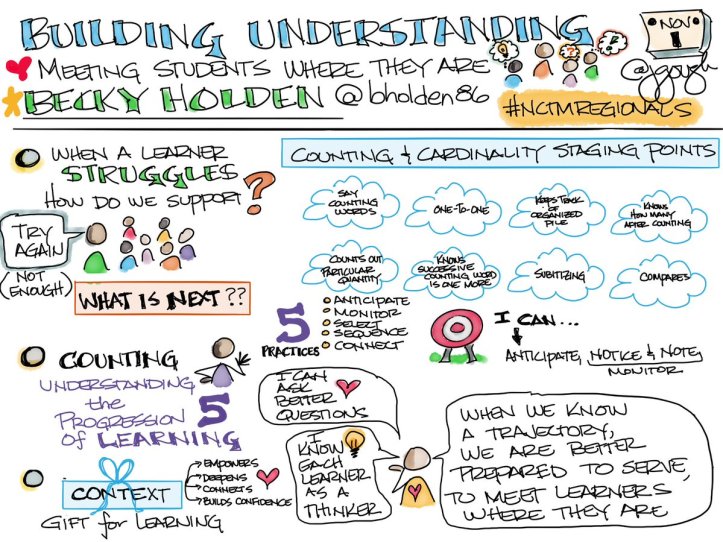 BUILDING UNDERSTANDING
MEETING STUDENTS WHERE THEY ARE
BECKY HOLDEN @bholden86
NOV
1
@jgough
#NCTMREGIONALS
? !
WHEN A LEARNER
STRUGGLES
HOW DO WE SUPPORT?
TRY
AGAIN
(NOT
ENOUGH)
WHAT IS NEXT??
COUNTING & CARDINALITY STAGING POINTS
SAY
COUNTING
WORDS
ONE-TO-ONE
KEEPS TRACK
OF
ORGANIZED
PILE
KNOWS
HOW MANY
AFTER COUNTING
COUNTS OUT
PARTICULAR
QUANTITY
KNOWS
SUCCESSIVE
COUNTING WORD
IS ONE MORE
SUBITIZING
COMPARES
5
PRACTICES
ANTICIPATE
MONITOR
SELECT
SEQUENCE
CONNECT
I CAN...
ANTICIPATE, NOTICE & NOTE,
MONITOR
COUNTING
UNDERSTANDING
the
PROGRESSION 5
of LEARNING
CONTEXT
EMPOWERS
DEEPENS
CONNECTS
BUILDS CONFIDENCE
GIFT for LEARNING
I CAN
ASK
BETTER
QUESTIONS
I
KNOW
EACH
LEARNER
AS A
THINKER
WHEN WE KNOW
A TRAJECTORY,
WE ARE BETTER
PREPARED TO SERVE,
TO MEET LEARNERS
WHERE THEY ARE